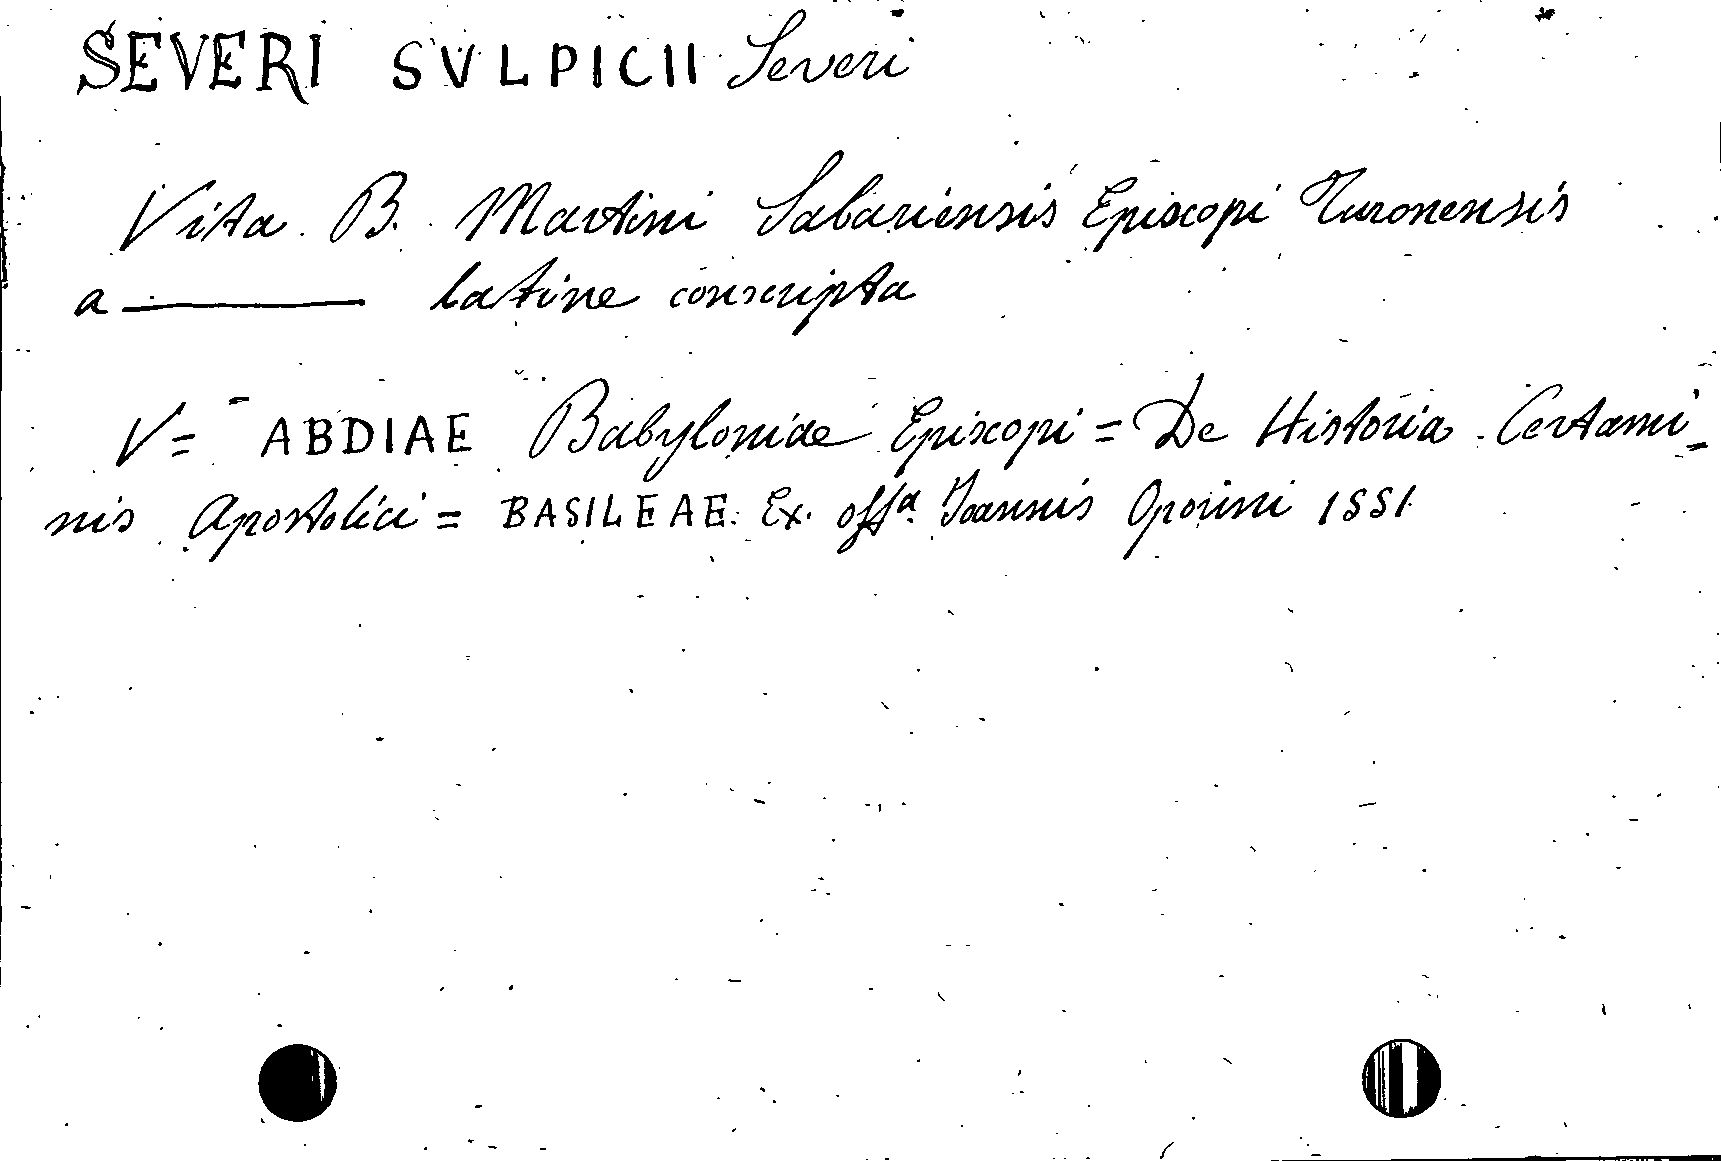 SEVERI SVLPICII Severi
Vita B. Martini Sabariensis Episcopi Turonensis
a ——— latine conscripta
V= ABDIAE Babyloniae Episcopi = De Historia Certami-
nis Apostolici = BASILEAE. Ex. offª. Ioannis Oporini 1551